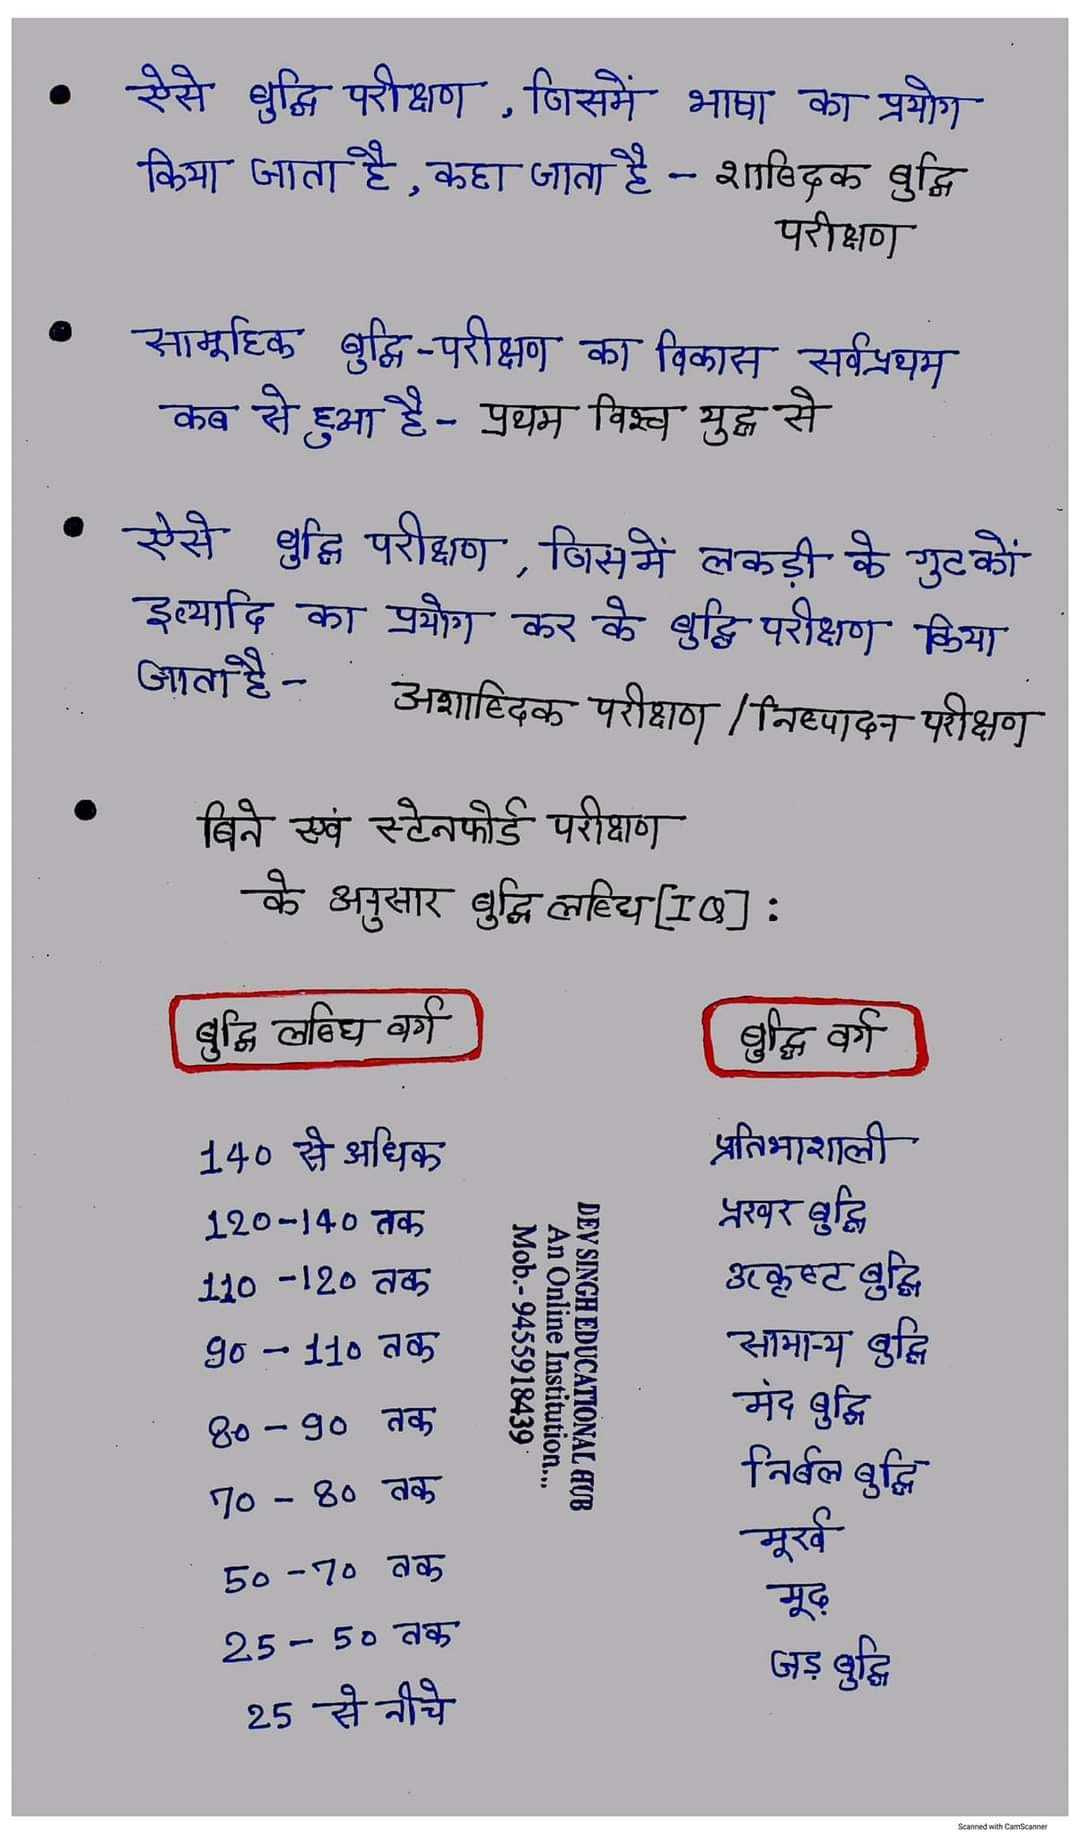 ऐसे बुद्धि परीक्षण, जिसमें भाषा का प्रयोग
किया जाता है, कहा जाता है - शाब्दिक बुद्धि
परीक्षण
सामूहिक बुद्धि-परीक्षण का विकास सर्वप्रथम
कब से हुआ है- प्रथम विश्व युद्ध से
ऐसे बुद्धि परीक्षण, जिसमें लकड़ी के गुटकों
इत्यादि का प्रयोग कर के बुद्धि परीक्षण किया
जाता है-
अशाब्दिक परीक्षण / निष्पादन परीक्षण
बिने एवं स्टेनफोर्ड परीक्षण
के अनुसार बुद्धि लब्धि [IQ] :
बुद्धि लब्धि वर्ग बुद्धि वर्ग
140 से अधिक प्रतिभाशाली
120-140 तक प्रखर बुद्धि
110-120 तक उत्कृष्ट बुद्धि
90 - 110 तक सामान्य बुद्धि
80 - 90 तक मंद बुद्धि
70 - 80 तक निर्बल बुद्धि
50 - 70 तक मूर्ख
25 - 50 तक मूढ़
25 से नीचे जड़ बुद्धि
DEV SINGH EDUCATIONAL HUB
An Online Institution...
Mob.- 9455918439
Scanned with CamScanner